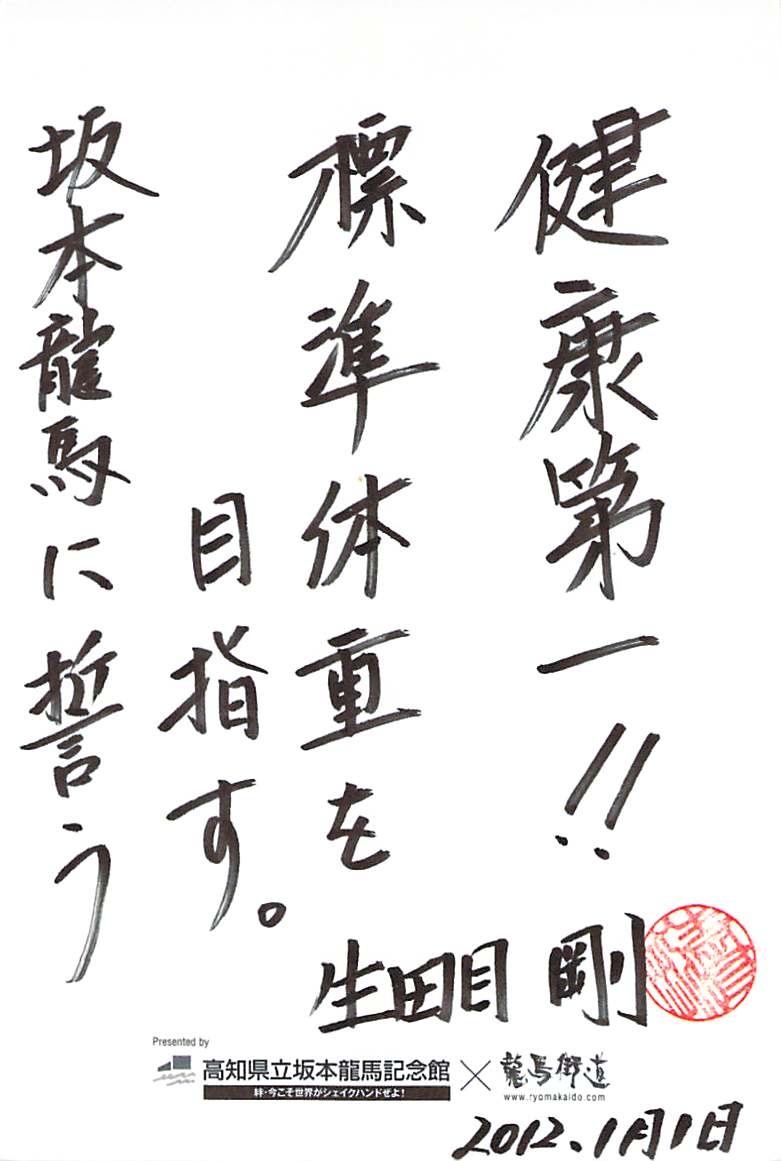 健康第一!!
標準体重を
目指す。
坂本龍馬に誓う
生田目 剛
Presented by
高知県立坂本龍馬記念館×龍馬街道
絆・今こそ世界がシェイクハンドぜよ!
www.ryomakaido.com
2012.1月1日